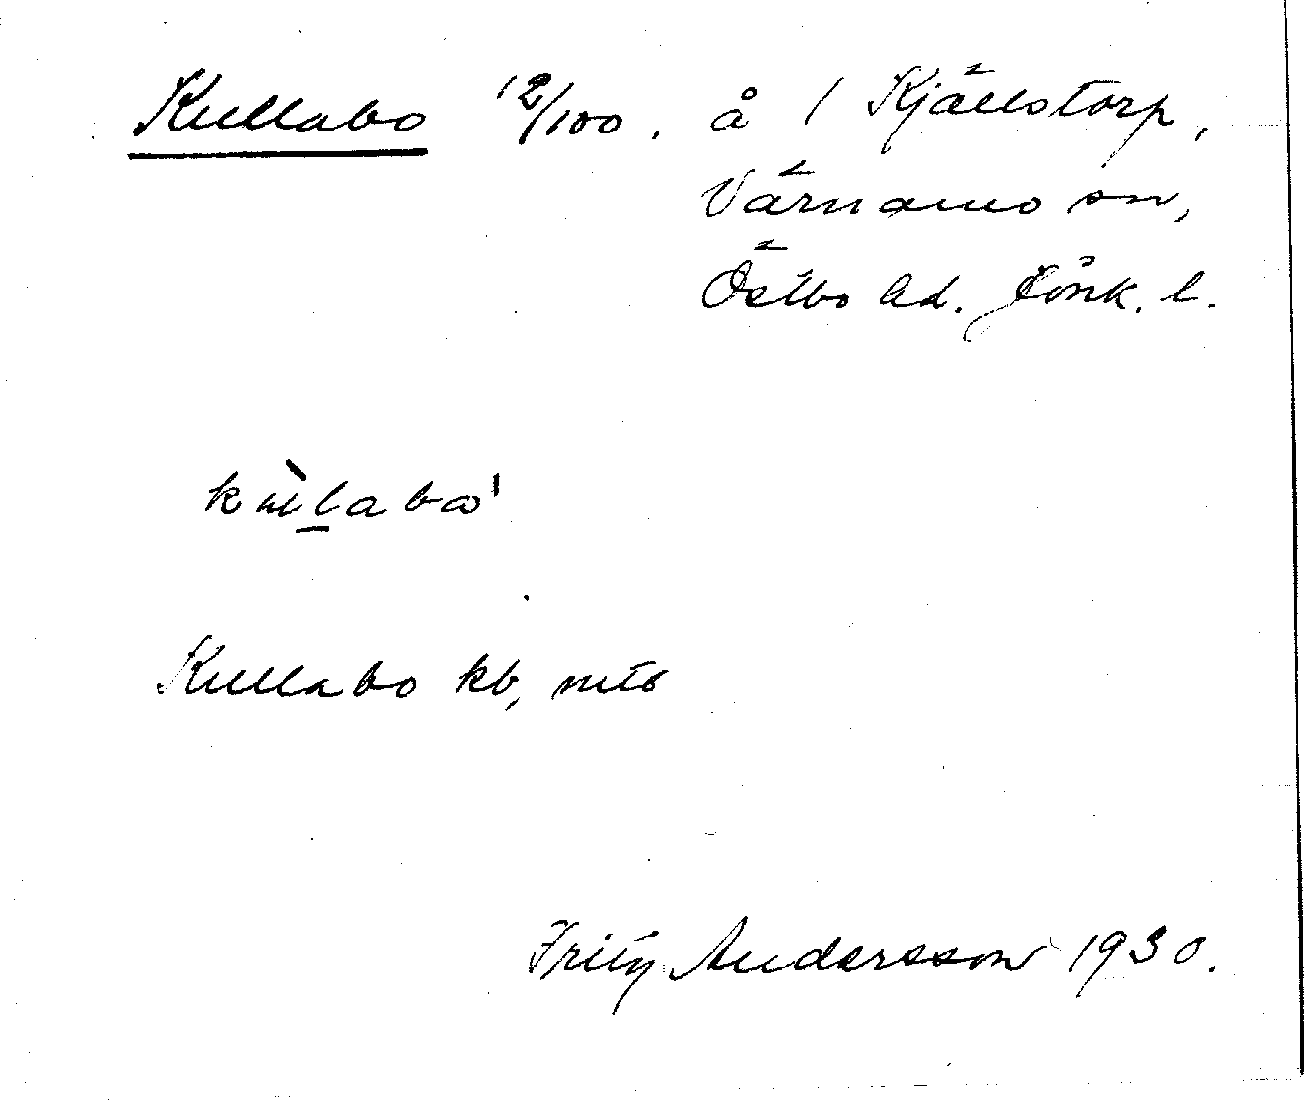 Kullabo 12/100. å 1 Kjällstorp,
Värnamo sn,
Östbo hd. Jönk. l.
kùl̲abo'
Kullabo kb, mtb
Fritz Andersson 1930.